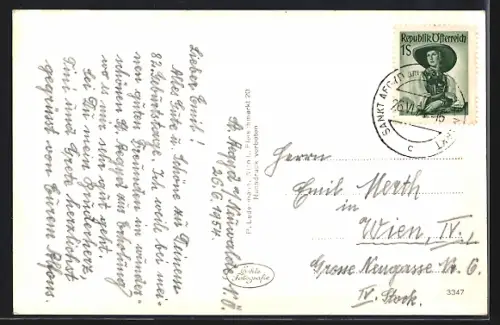 St. Aegyd a/Neuwalde, N.Ö.
26.6.1954.
Lieber Emil!
Alles Gute u. Schöne zu Deinem
82. Geburtstage. Ich weile bei mei-
nen guten Freunden im wunder-
schönen St. Aegyd zur Erholung
wo es mir sehr gut geht.
Sei Du mein Bruderherz
Tini und Grete herzlichst
gegrüsst von Eurem Alfons.
P. Ledermann, Wien I., Fleischmarkt 20
Nachdruck verboten
Echte Fotografie
Republik Österreich
1S
SANKT AEGYD
26.VI.
c
Herrn
Emil Merth
in
Wien, IV.,
Grosse Neugasse No. 6
IV. Stock.
3347